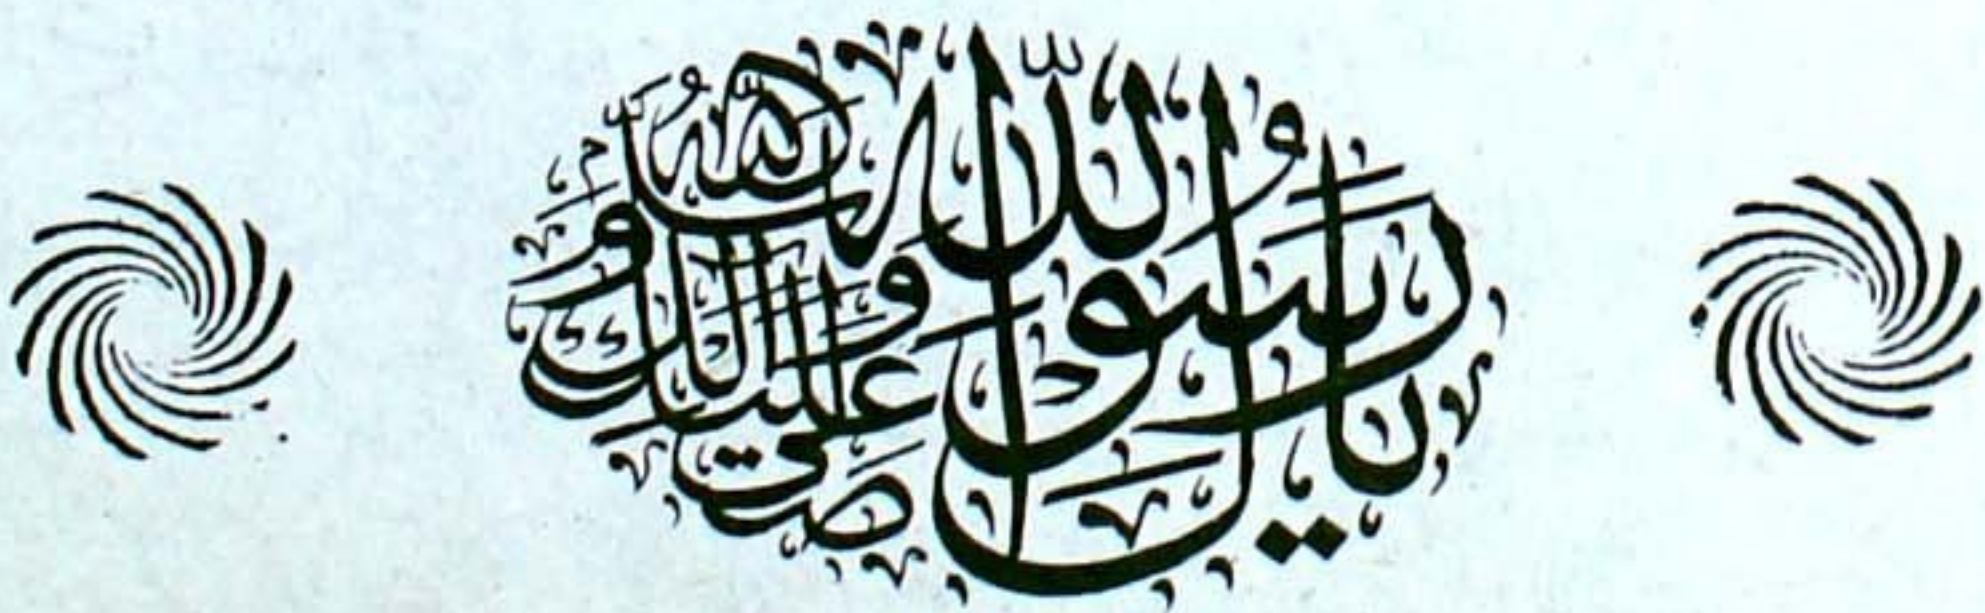 يا رسول الله صلى الله عليك وآلك وسلم